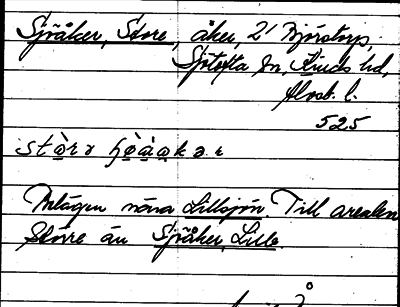 Sjöåker, Store, åker, 2¹ Björstorp,
Sjötofta sn, Kinds hd,
Älvsb. l.
525
Belägen nära Lillsjön. Till arealen
större än Sjöåker, Lille.